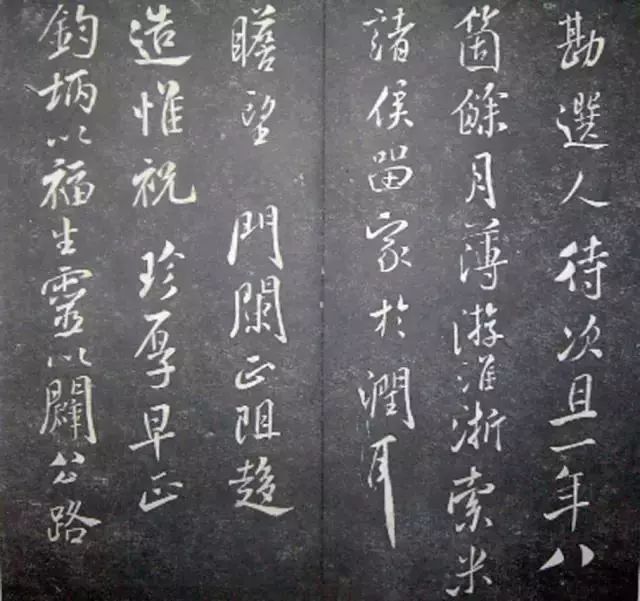 勘選人待次且一年八
箇餘月薄游淮浙索米
諸侯留家於潤耳
瞻望 門闌正阻趨
造惟祝 珍厚早正
鈞柄以福生靈以闢公路